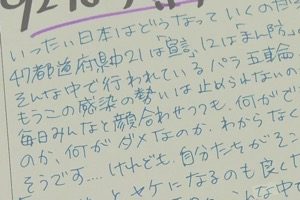 いったい日本はどうなって いくのだ
47都道府県中21は「宣言」、12は「まん防」。
そんな中で行われているパラ五輪
もうこの感染の勢いは止められないの
毎日みんなと顔合わせつつも、何がで
のか、何がダメなのか、わからなく
そうです....けれども、自分たちがそ
とヤケになるのも良くな